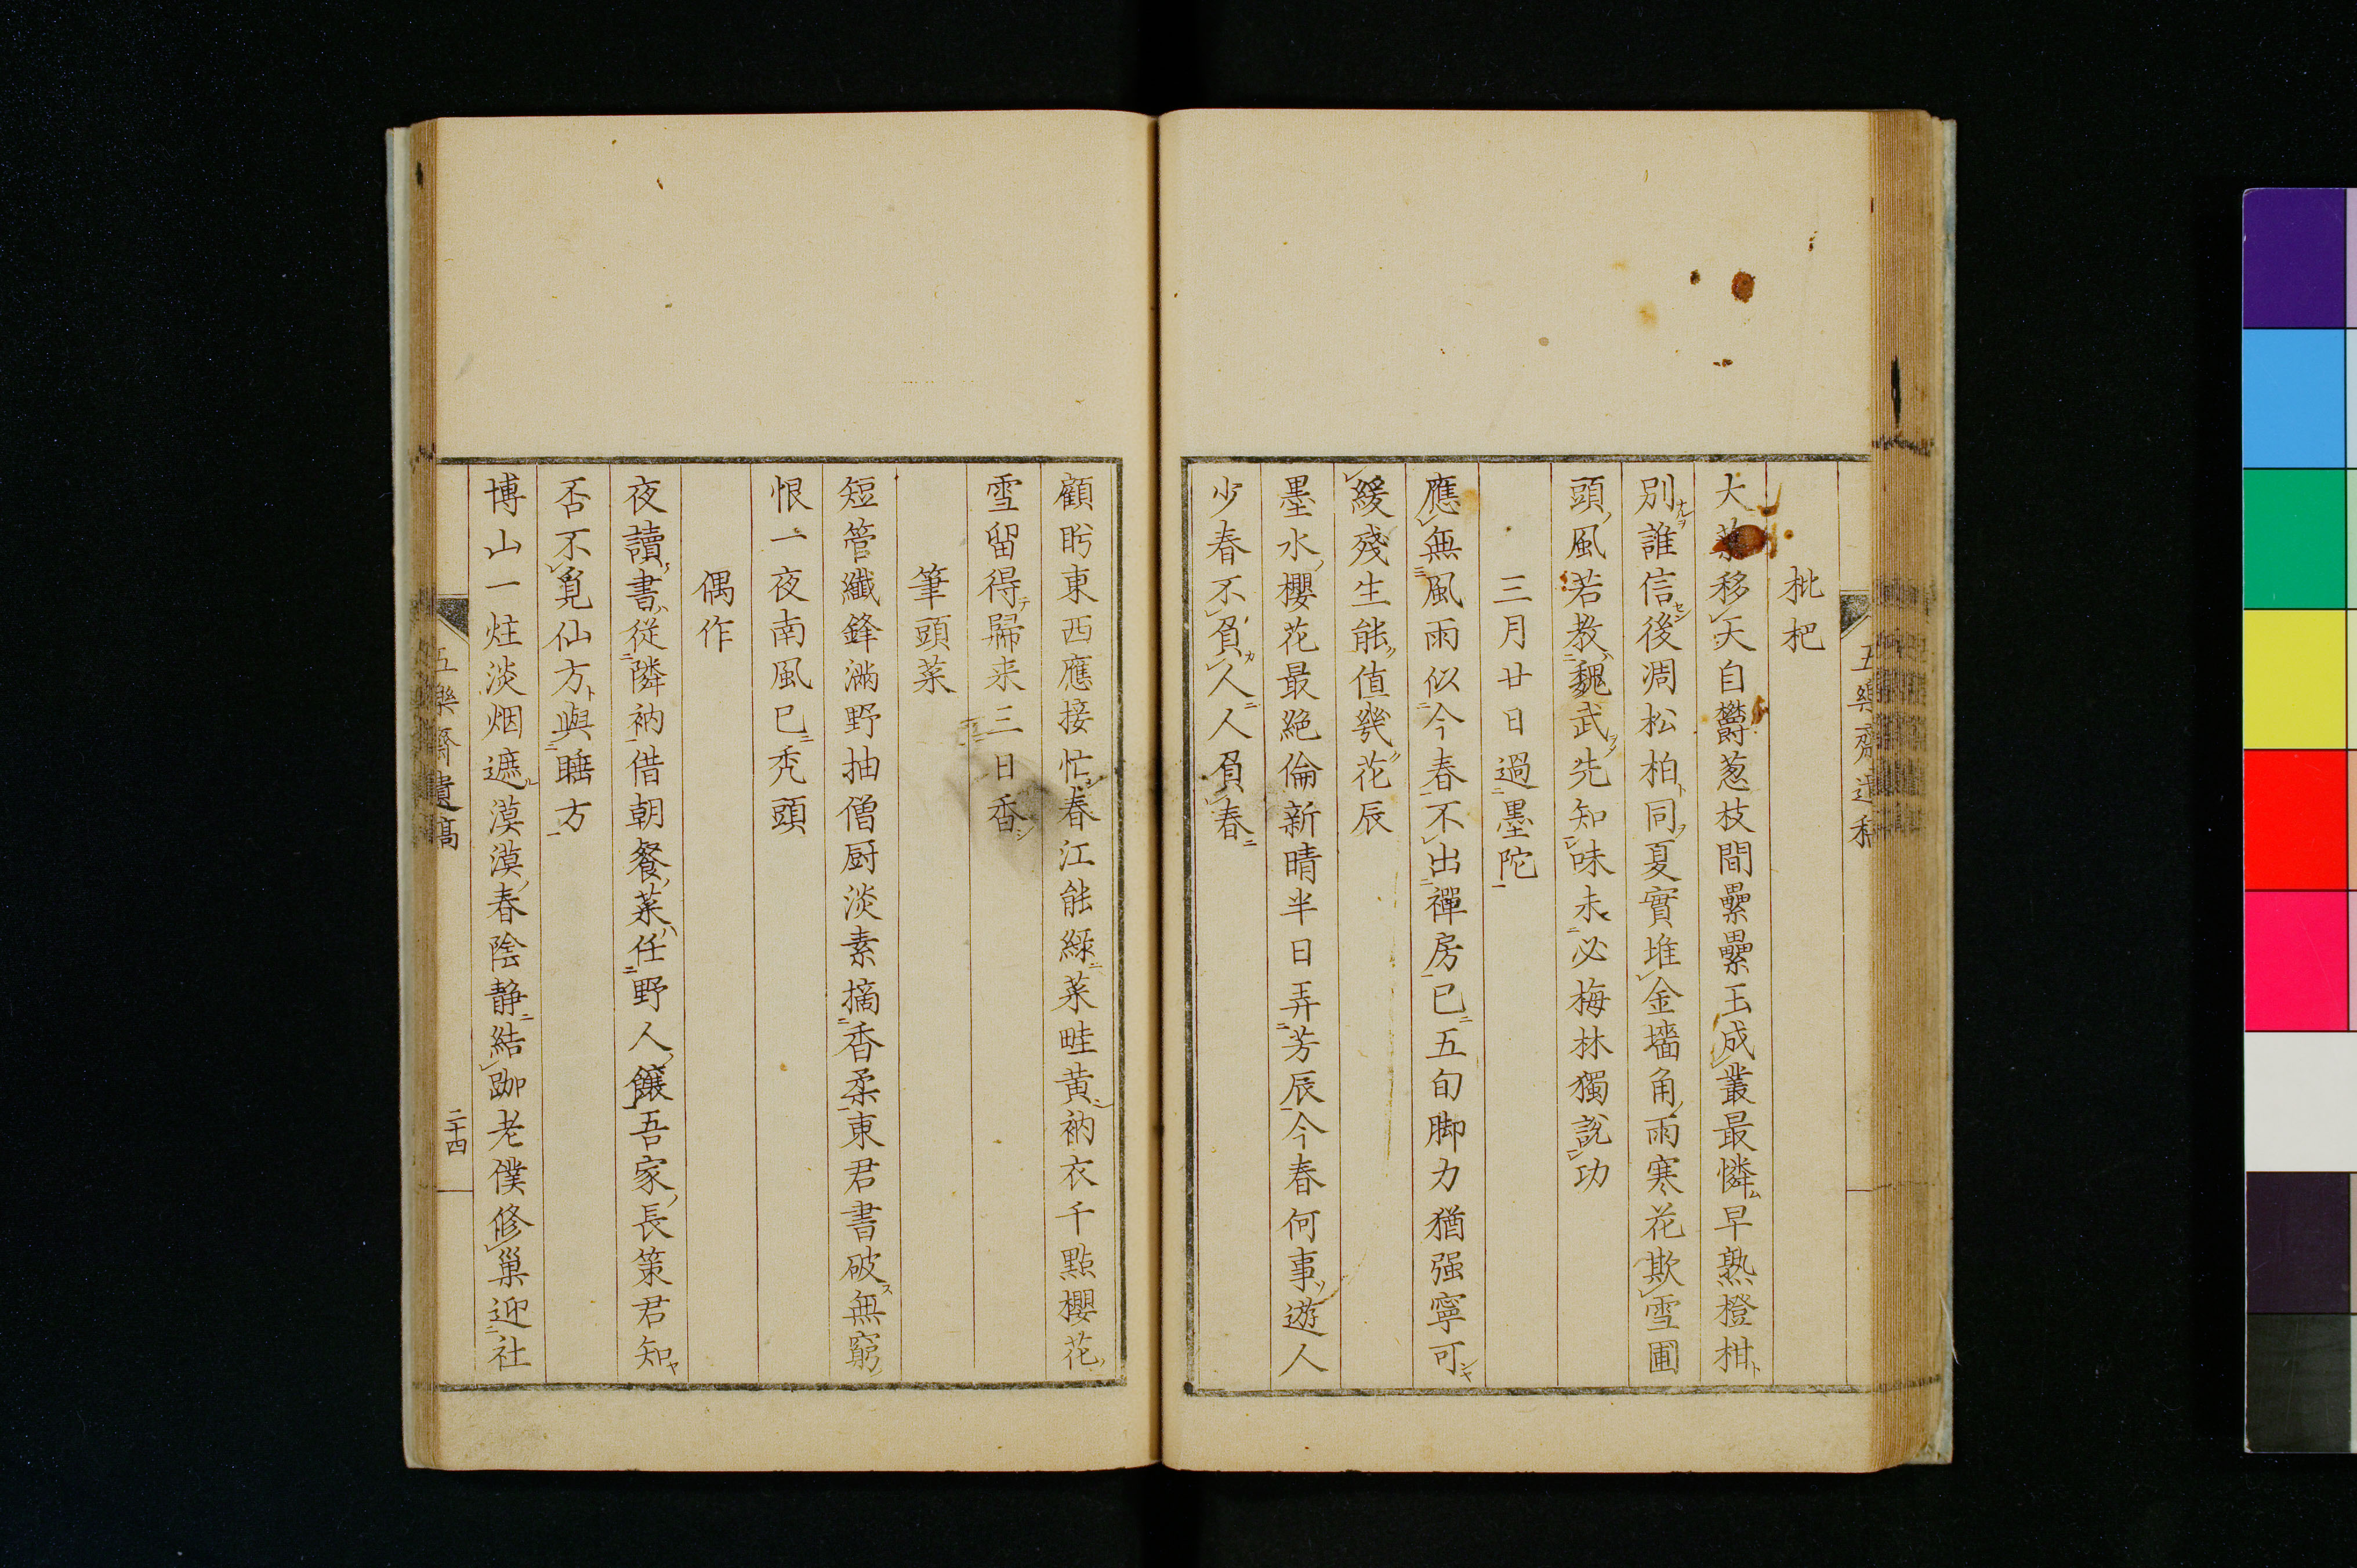 枇杷
大葉移天自欝葱枝間纍纍玉成叢最憐早熟橙柑
別誰信後凋松柏同夏實堆金墻角雨寒花欺雪圃
頭風若教魏武先知味未必梅林獨說功
三月廿日過墨陀
應無風雨似今春不出禪房已五旬脚力猶强寧可
緩殘生能値幾花辰
墨水櫻花最絶倫新晴半日弄芳辰今春何事遊人
少春不負人人負春
五樂齋遺稿
顧眄東西應接忙春江能綠菜畦黄衲衣千點櫻花
雪留得歸来三日香
筆頭菜
短管纖鋒滿野抽僧厨淡素摘香柔東君書破無窮
恨一夜南風已秃頭
偶作
夜讀書從隣衲借朝餐菜任野人饟吾家長策君知
否不覓仙方與睡方
博山一炷淡烟遮漠漠春陰静結跏老僕修巢迎社
五樂齋遺稿
二十四